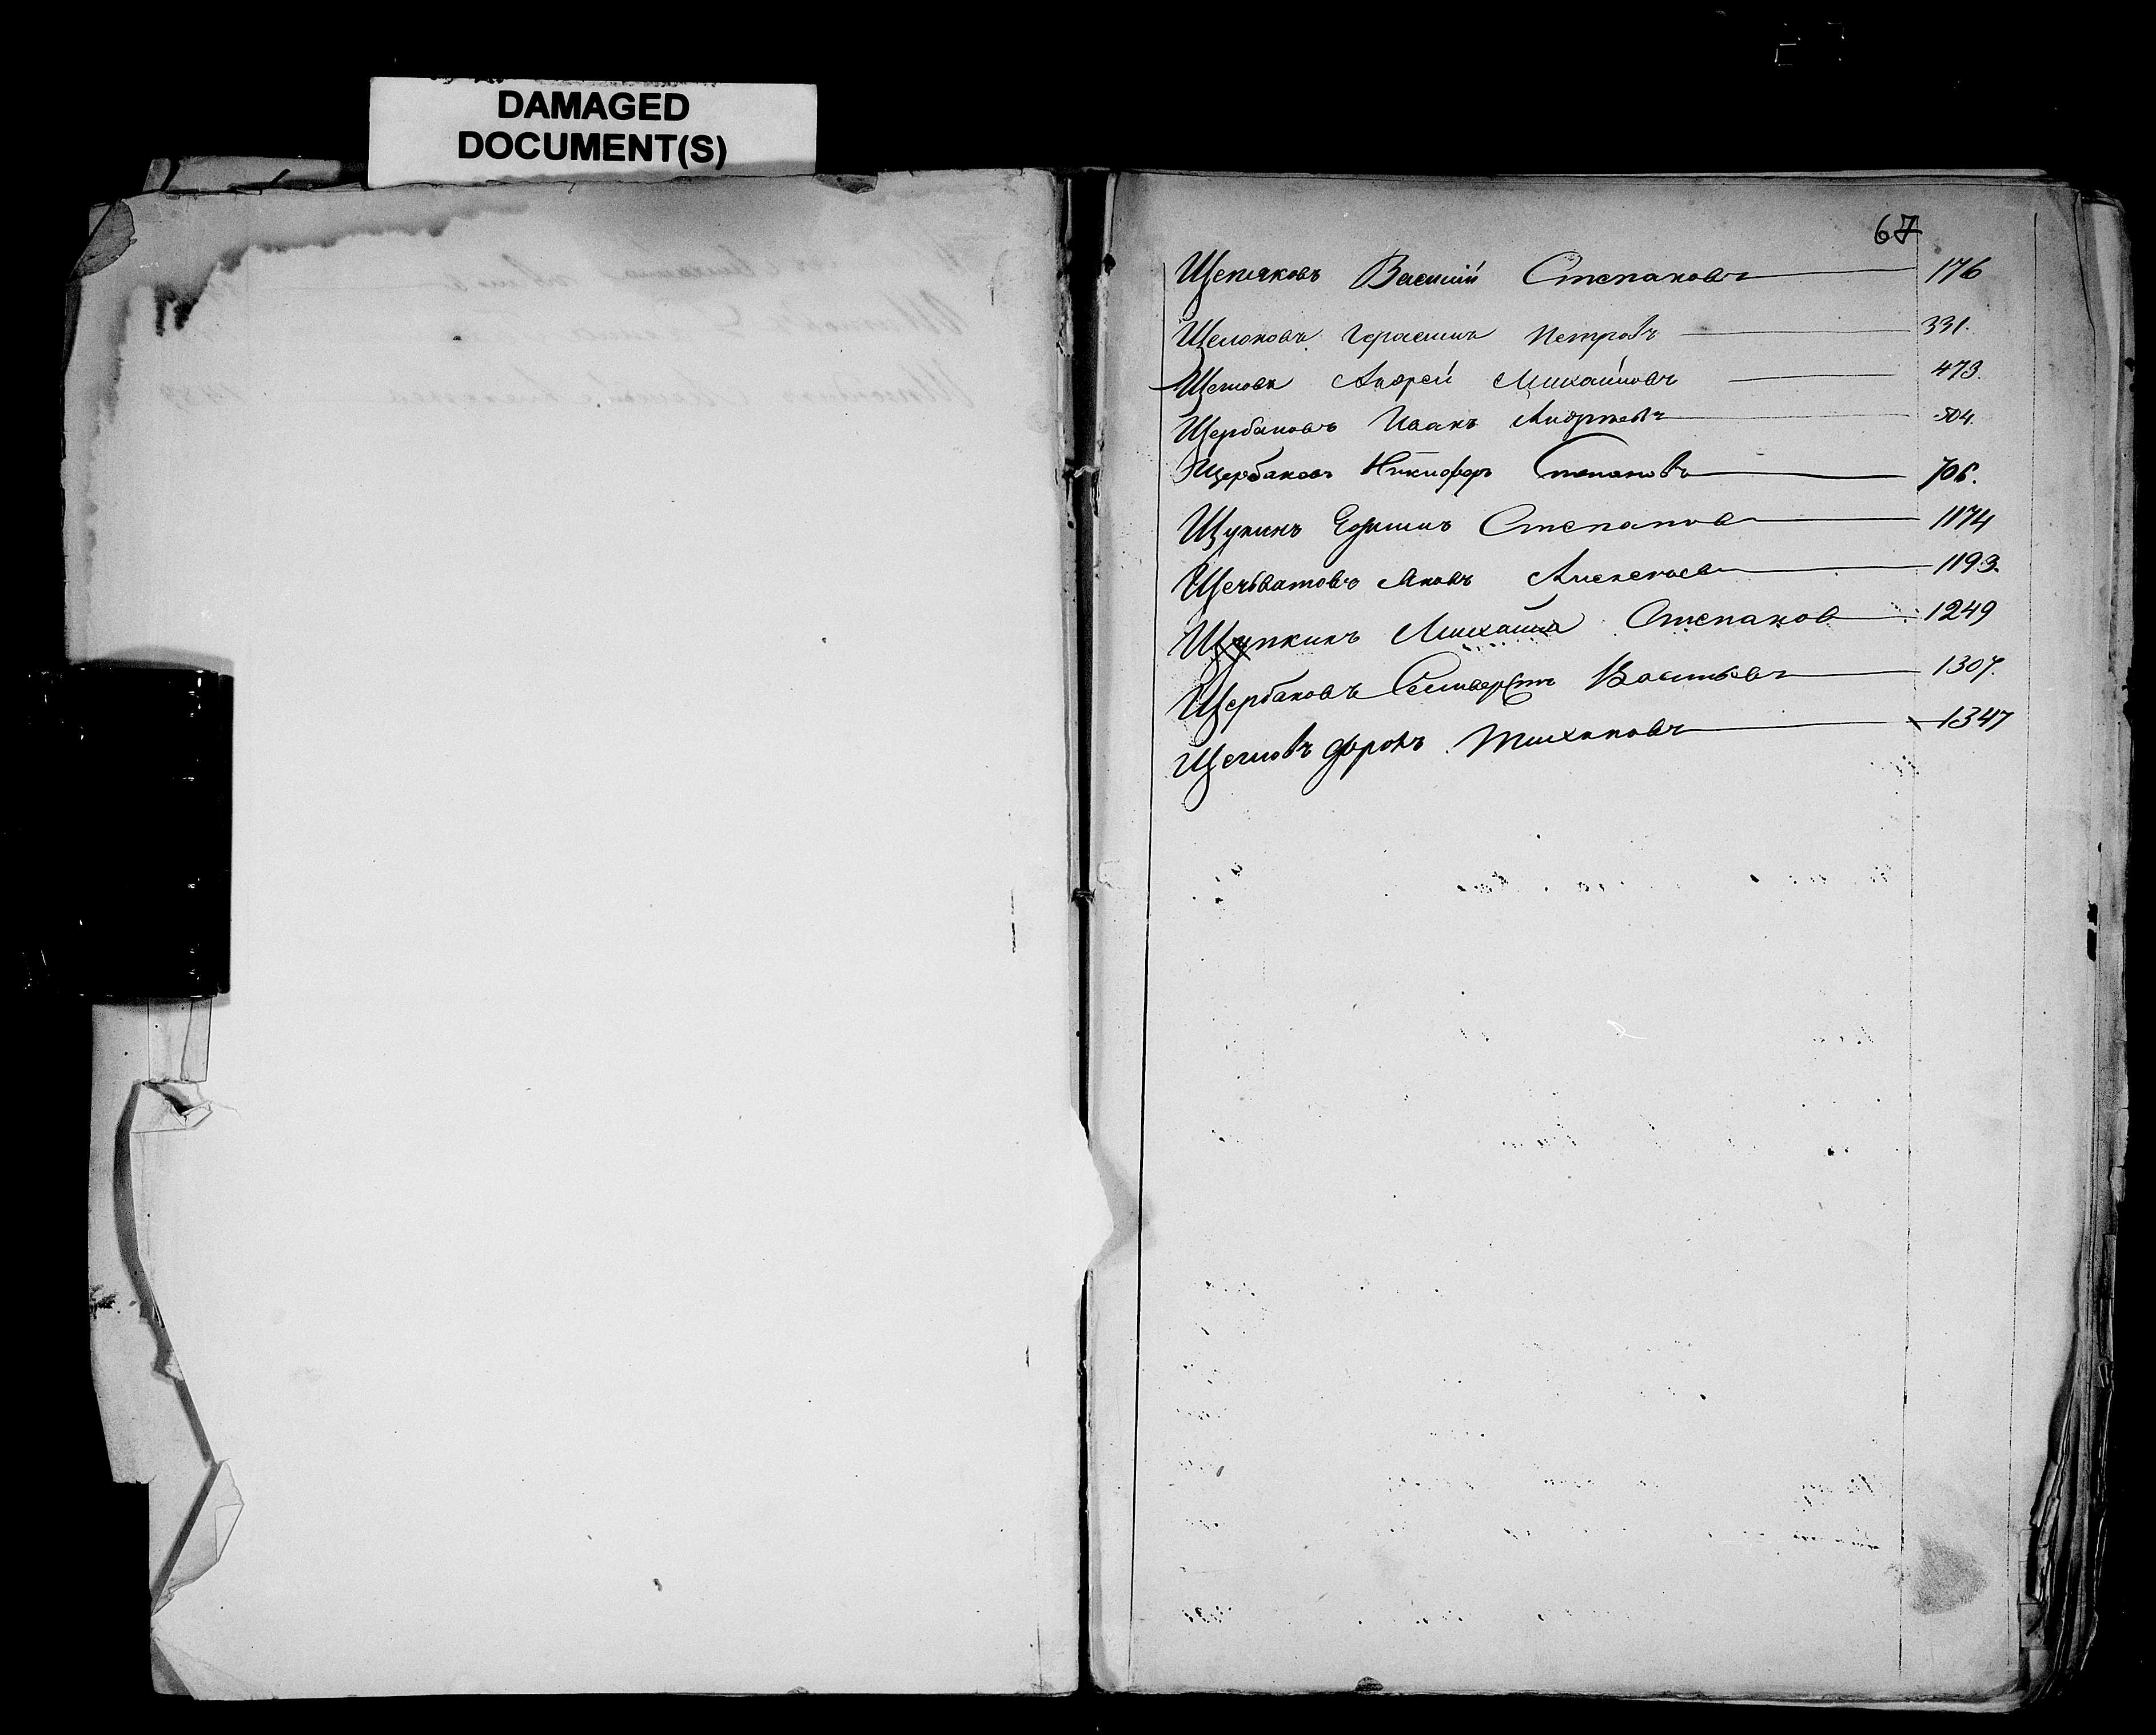 DAMAGED
DOCUMENT(S)
67
Щепляковъ Василій Степановъ 176
Щелоковъ Герасимъ Петровъ 331.
Щегловъ Андрей Михайловъ 473.
Щербаковъ Иванъ Андреевъ 504.
Щербаковъ Никифоръ Степановъ 706.
Щукинъ Ефимъ Степановъ 1174
Яковъ Алексеевъ 1193.
Щупкинъ Михаилъ Степановъ 1249
Щербаковъ Селиверстъ Васильевъ 1307.
Щегловъ Фролъ Тихоновъ 1347